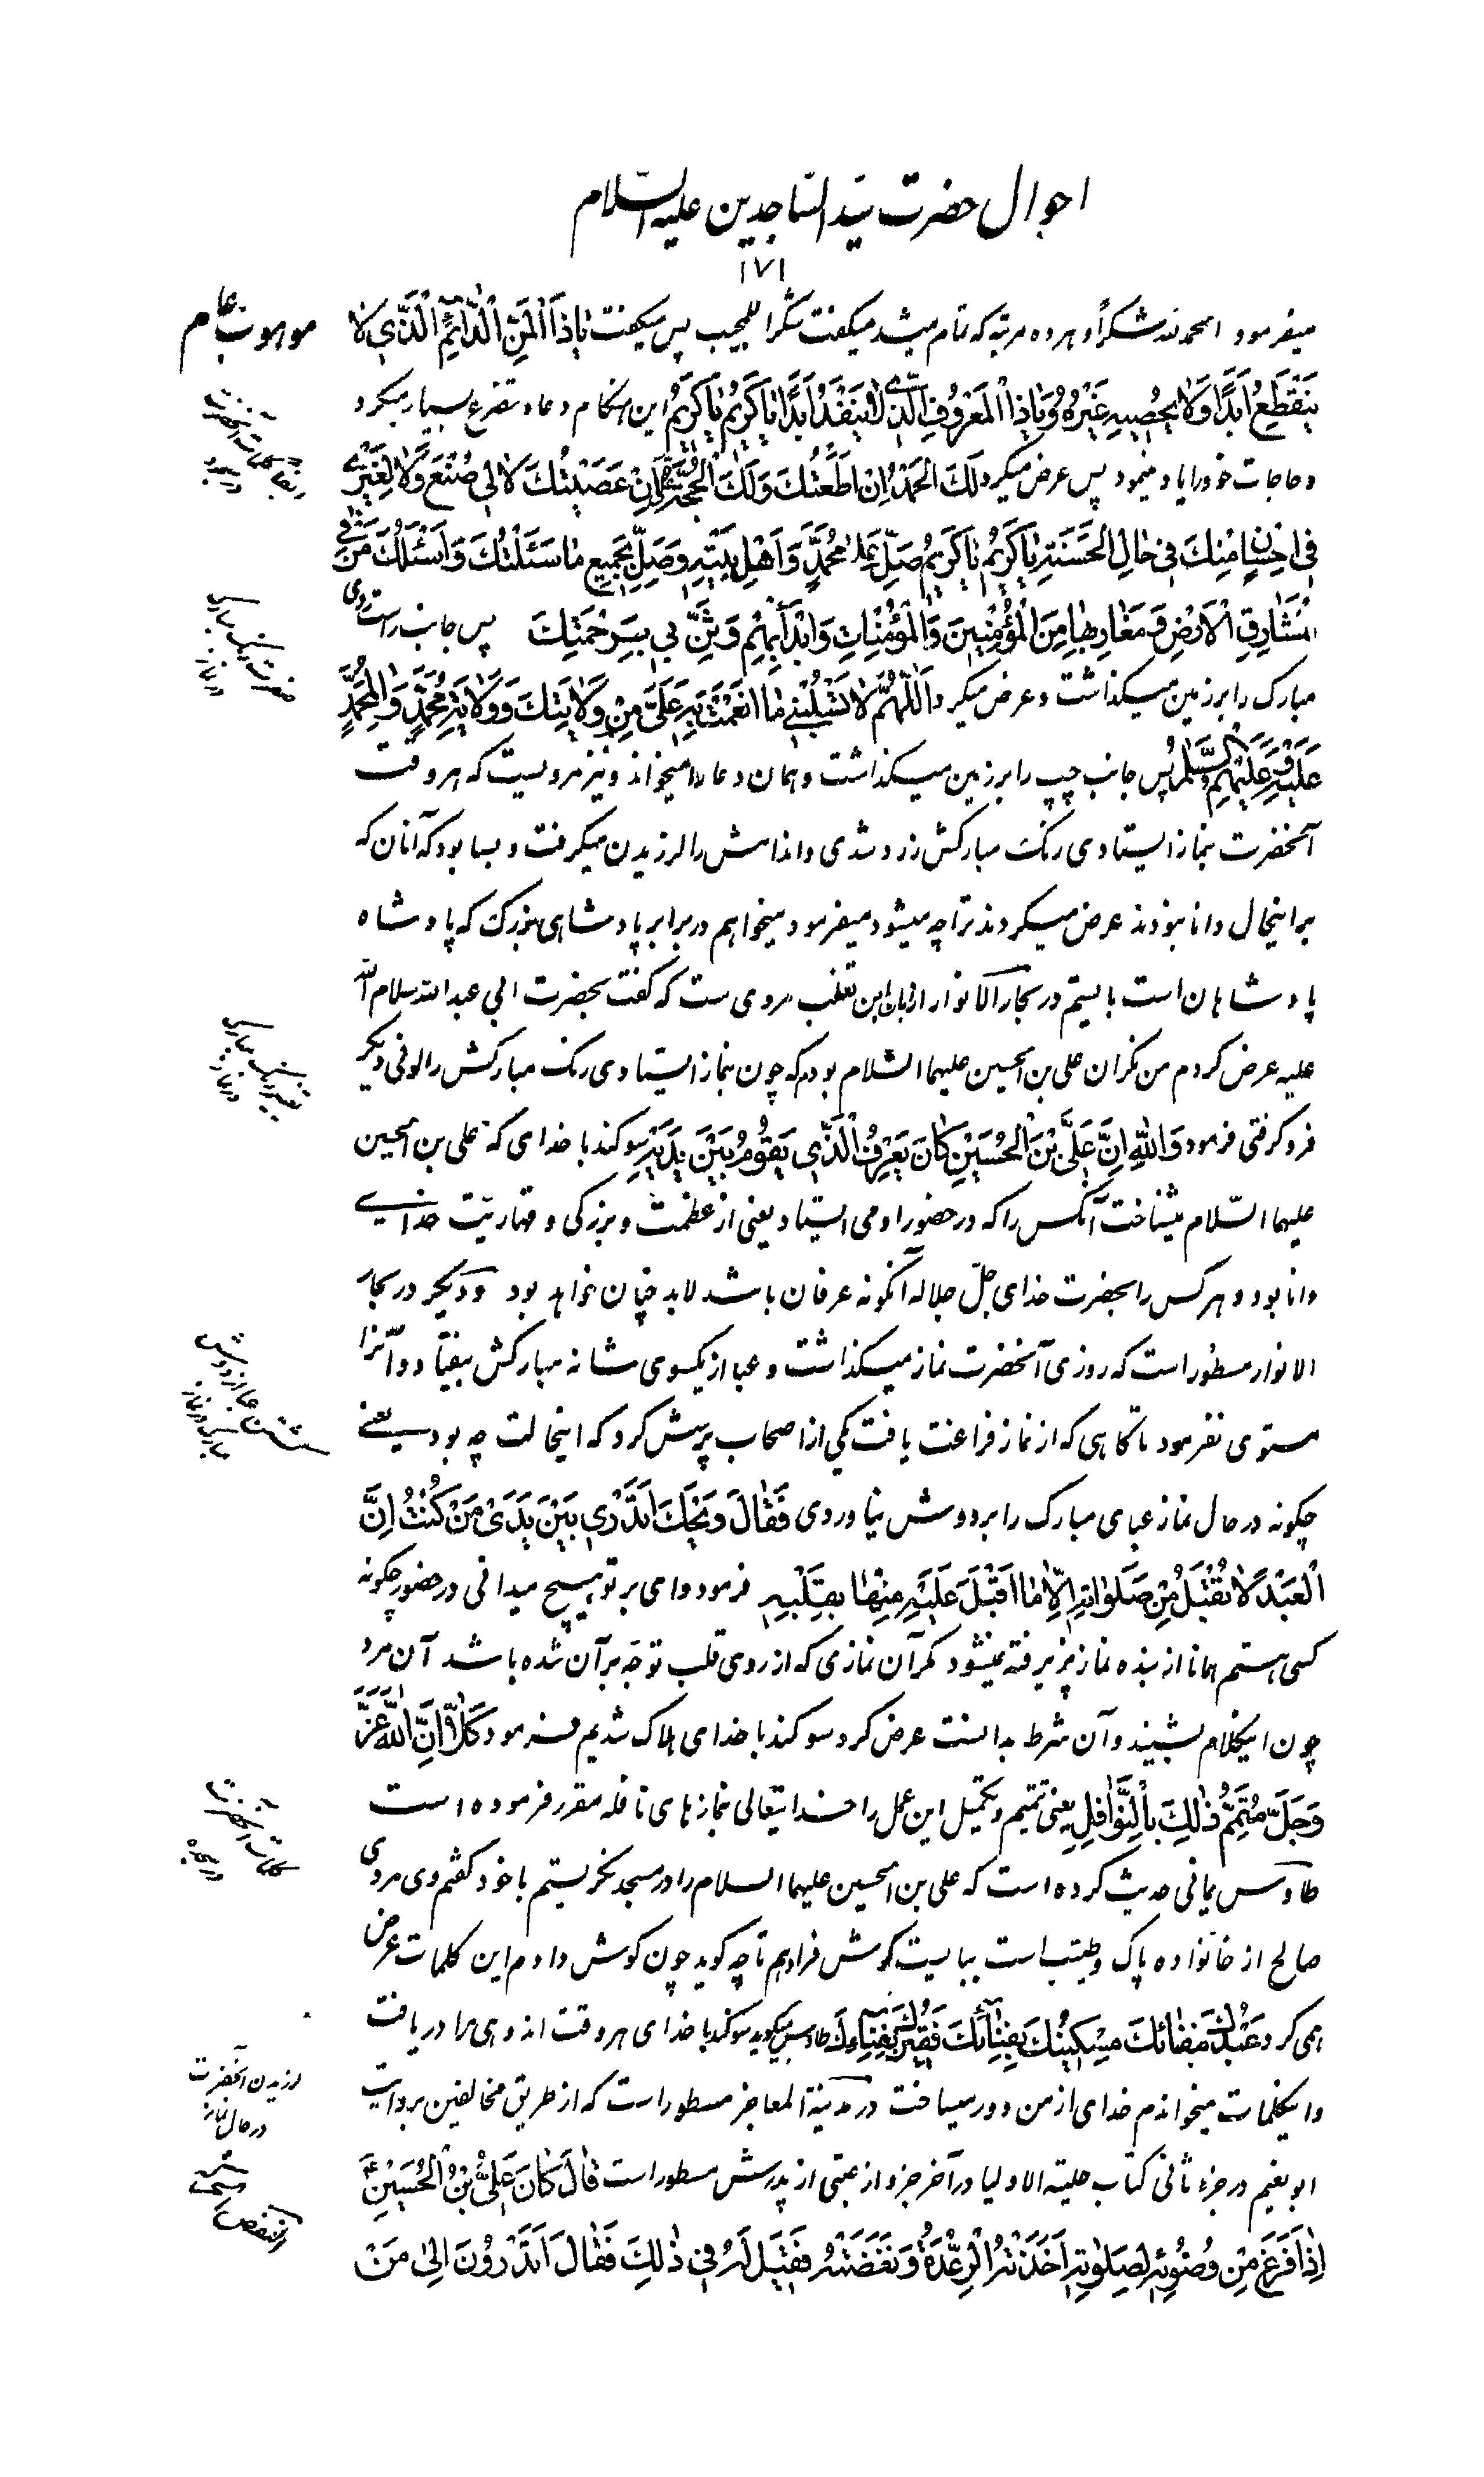 احوال حضرت سیّد السّاجدین علیه السّلام
۱۷۱
میفرمود الحمد لله شکراً و هر ده مرتبه که تمام میشد میگفت شکراً للمجیب پس میگفت یا ذَا الْمَنِّ الدّائِمِ الَّذی لا
یَنْقَطِعُ اَبَدًا وَلا یُحْصیهِ غَیْرُهُ وَیا ذَا الْمَعْرُوفِ الَّذی لا یَنْفَدُ اَبَدًا یا کَریمُ یا کَریمُ این هنگام دعا و تضرع بسیار میکرد
و حاجات خود را یاد مینمود پس عرض میکرد لَکَ الْحَمْدُ اِنْ اَطَعْتُکَ وَلَکَ الْحُجَّةُ اِنْ عَصَیْتُکَ لا لی صُنْعَ وَلا لِغَیْری
فی اِحْسانٍ مِنْکَ فی حالِ الْحَسَنَةِ یا کَریمُ یا کَریمُ صَلِّ عَلی مُحَمَّدٍ وَاَهْلِ بَیْتِهِ وَصِلْ بِجَمیعِ ما سَئَلْتُکَ وَاَسْئَلُکَ مَنْ فی
مَشارِقِ الْاَرْضِ وَمَغارِبِها مِنَ الْمُؤْمِنینَ وَالْمُؤْمِناتِ وَابْدَأْ بِهِمْ وَثَنِّ بی بِرَحْمَتِکَ پس جانب راست روی
مبارک را بر زمین میگذاشت و عرض میکرد اَللّهُمَّ لا تَسْلُبْنی ما اَنْعَمْتَ بِهِ عَلَیَّ مِنْ وِلایَتِکَ وَوِلایَةِ مُحَمَّدٍ وَآلِ مُحَمَّدٍ
عَلَیْهِ وَعَلَیْهِمُ السَّلامُ پس جانب چپ را بر زمین میگذاشت و همان دعا را میخواند و نیز مرویست که هر وقت
آنحضرت بنماز ایستادی رنگ مبارکش زرد شدی و اندامش را لرزیدن میگرفت و بسا بود که آنان که
براینحال دانا نبودند عرض میکردند ترا چه میشود میفرمود میخواهم در برابر پادشاهی بزرگ که پادشاه
پادشاهان است بایستم در بحار الانوار از ابان ابن تغلب مروی ست که گفت بحضرت ابی عبد الله سلام الله
علیه عرض کردم من نگران علی بن الحسین علیهما السّلام بودم که چون بنماز ایستادی رنگ مبارکش را لونی دیگر
فرو گرفتی فرمود وَاللّهِ اِنَّ عَلِیَّ بْنَ الْحُسَیْنِ کانَ یَعْرِفُ الَّذی یَقُومُ بَیْنَ یَدَیْهِ سوگند با خدای که علی بن الحسین
علیهما السّلام میشناخت آنکس را که در حضور او می ایستاد یعنی از عظمت و بزرگی و قهاریّت خدائی
دانا بود و هر کس را بحضرت خدای جلّ جلاله آنگونه عرفان باشد لابد چنان خواهد بود و دیگر در بحار
الانوار مسطور است که روزی آنحضرت نماز میگذاشت و عبا از یکسوی شانه مبارکش بیفتاد و آنرا
مستوی نفرمود تا گاهی که از نماز فراغت یافت یکی از اصحاب پرسش کرد که اینحالت چه بود یعنی
چگونه در حال نماز عبای مبارک را بر دوش نیاوردی فَقالَ وَیْحَکَ اَتَدْری بَیْنَ یَدَیْ مَنْ کُنْتُ اِنَّ
الْعَبْدَ لا تُقْبَلُ مِنْ صَلَواتِهِ اِلّا ما اَقْبَلَ عَلَیْهِ مِنْها بِقَلْبِهِ فرمود وای بر تو هیچ میدانی در حضور چگونه
کسی هستم همانا از بنده نماز پذیرفته نمیشود مگر آن نمازی که از روی قلب توجّه بر آن شده باشد آن مرد
چون اینکلام بشنید و آن شرط بدانست عرض کرد سوگند با خدای هلاک شدیم فرمود کَلّا اِنَّ اللّهَ عَزَّ
وَجَلَّ مُتَمِّمُ ذلِکَ بِالنَّوافِلِ یعنی تتمیم و تکمیل این عمل را خدایتعالی بنمازهای نافله مقرر فرموده است
طاوس یمانی حدیث کرده است که علی بن الحسین علیهما السلام را در مسجد نگریستم با خود گفتم وی مردی
صالح از خانواده پاک و طیّب است ببایست گوش فرا دهم تا چه گوید چون گوش دادم این کلمات عرض
همی کرد عَبْدُکَ بِفِنائِکَ مِسْکینُکَ بِفِنائِکَ فَقیرُکَ بِفِنائِکَ طاوس میگوید سوگند با خدای هر وقت اندوهی مرا دریافت
و اینکلمات میخواندم خدای از من دور میساخت در مدینة المعاجز مسطور است که از طریق مخالفین بروایت
ابو نعیم در جزء ثانی کتاب حلیة الاولیا در آخر جزو از عتبی از پدرش مسطور است قالَ کانَ عَلِیُّ بْنُ الْحُسَیْنِ
اِذا فَرَغَ مِنْ وُضُوئِهِ لِصَلوتِهِ اَخَذَتْهُ الرِّعْدَةُ وَنَفْضَتُهُ فَقیلَ لَهُ فی ذلِکَ فَقالَ اَتَدْرُونَ اِلی مَنْ
کلمات آنحضرت
در سجده
لرزیدن آنحضرت
در حال نماز